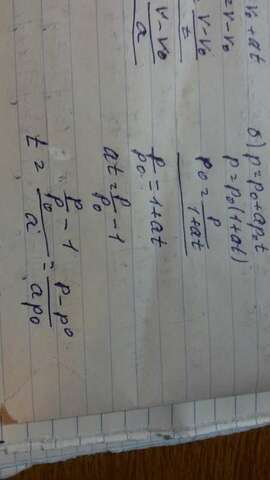 v₀ + at
= v - v₀
v - v₀
v - v₀ / a
б) p = p₀ + ap₀t
p = p₀(1 + at)
p₀ = p / 1 + at
p / p₀ = 1 + at
at = p / p₀ - 1
t = p / p₀ - 1 / a = p - p₀ / ap₀